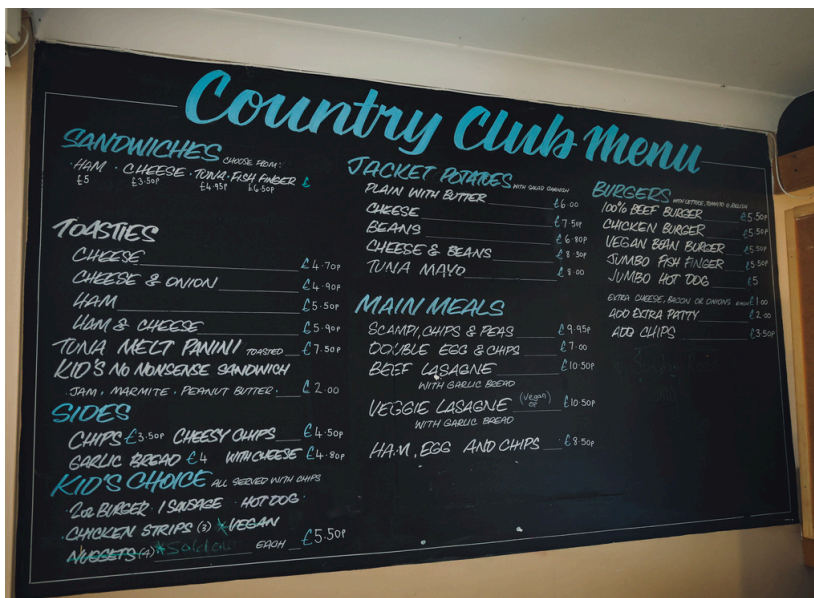 Country Club Menu
SANDWICHES CHOOSE FROM:
·HAM · CHEESE · TUNA · FISH FINGER £
£5 £3.50P £4.95P £6.50P
TOASTIES
CHEESE £4.70P
CHEESE & ONION £4.90P
HAM £5.50P
HAM & CHEESE £5.90P
TUNA MELT PANINI TOASTED £7.50P
KID'S NO NONSENSE SANDWICH
JAM, MARMITE, PEANUT BUTTER. £2.00
SIDES
CHIPS £3.50P CHEESY CHIPS £4.50P
GARLIC BREAD £4 WITH CHEESE £4.80P
KID'S CHOICE ALL SERVED WITH CHIPS
·2oz BURGER · 1 SAUSAGE · HOT DOG ·
·CHICKEN STRIPS (3) *VEGAN
NUGGETS (4) *Sold out EACH £5.50P
JACKET POTATOES WITH SALAD GARNISH
PLAIN WITH BUTTER £6.00
CHEESE £7.50P
BEANS £6.80P
CHEESE & BEANS £8.30P
TUNA MAYO £8.00
MAIN MEALS
SCAMPI, CHIPS & PEAS £9.95P
DOUBLE EGG & CHIPS £7.00
BEEF LASAGNE £10.50P
WITH GARLIC BREAD
VEGGIE LASAGNE (Vegan OP £10.50P
WITH GARLIC BREAD
HAM, EGG AND CHIPS £8.50P
BURGERS WITH LETTUCE, TOMATO & RELISH
100% BEEF BURGER £5.50P
CHICKEN BURGER £5.50P
VEGAN BEAN BURGER £5.50P
JUMBO FISH FINGER £5.50P
JUMBO HOT DOG £5
EXTRA CHEESE, BACON OR ONIONS EACH £1.00
ADD EXTRA PATTY £2.00
ADD CHIPS £3.50P